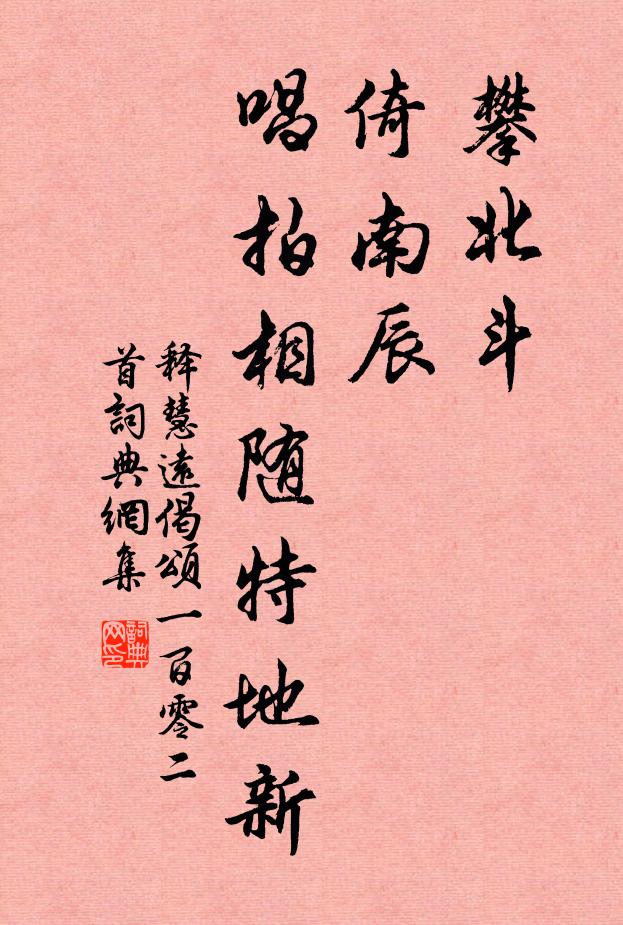 攀北斗
倚南辰
唱拍相随特地新
释慧遠偈頌一百零二
首詞典網集
詞典網印